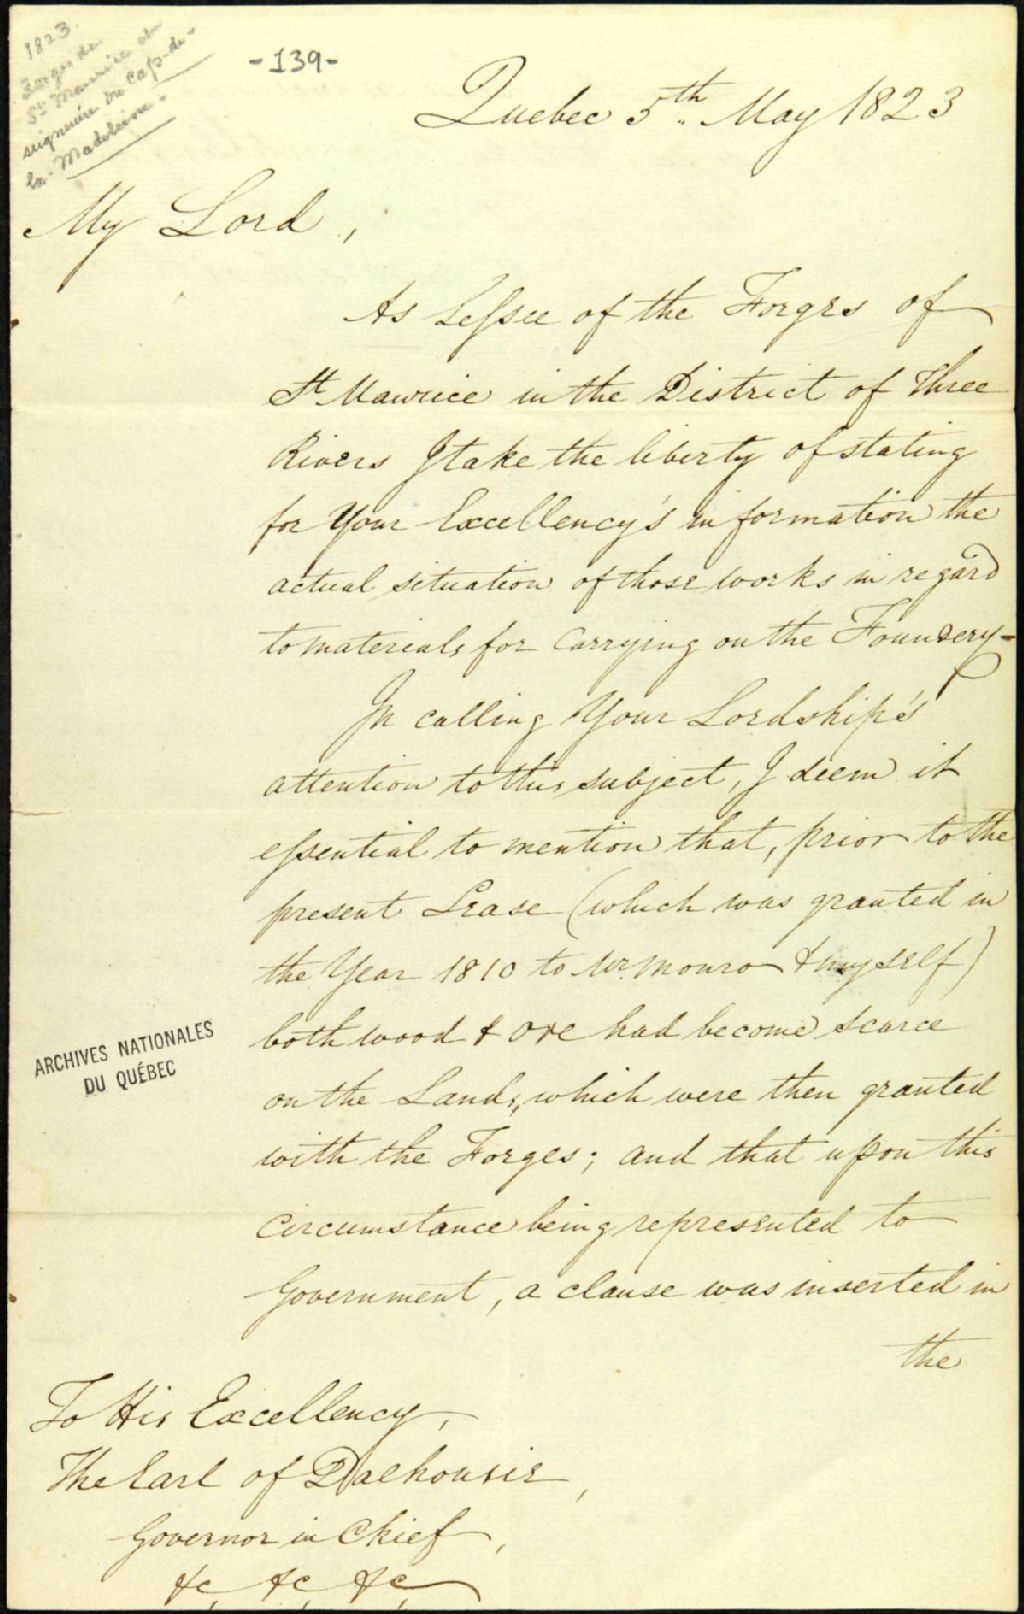 1823
Forges de
St Maurice et
seigneurie du Cap-de-
la-Madeleine.
-139-
Quebec 5th. May 1823
My Lord,
As Lessee of the Forges of
St Maurice in the District of Three
Rivers I take the liberty of stating
for Your Excellency's information the
actual situation of those works in regard
to materials for carrying on the Foundery-
In calling Your Lordship's
attention to this subject, I deem it
essential to mention that, prior to the
present Lease (which was granted in
the Year 1810 to Mr. Monro & myself)
both wood & ore had become scarce
on the Lands, which were then granted
with the Forges; and that upon this
circumstance being represented to
Government, a clause was inserted in
the
ARCHIVES NATIONALES
DU QUÉBEC
To His Excellency,
The Earl of Dalhousie,
Governor in Chief,
&c, &c, &c,